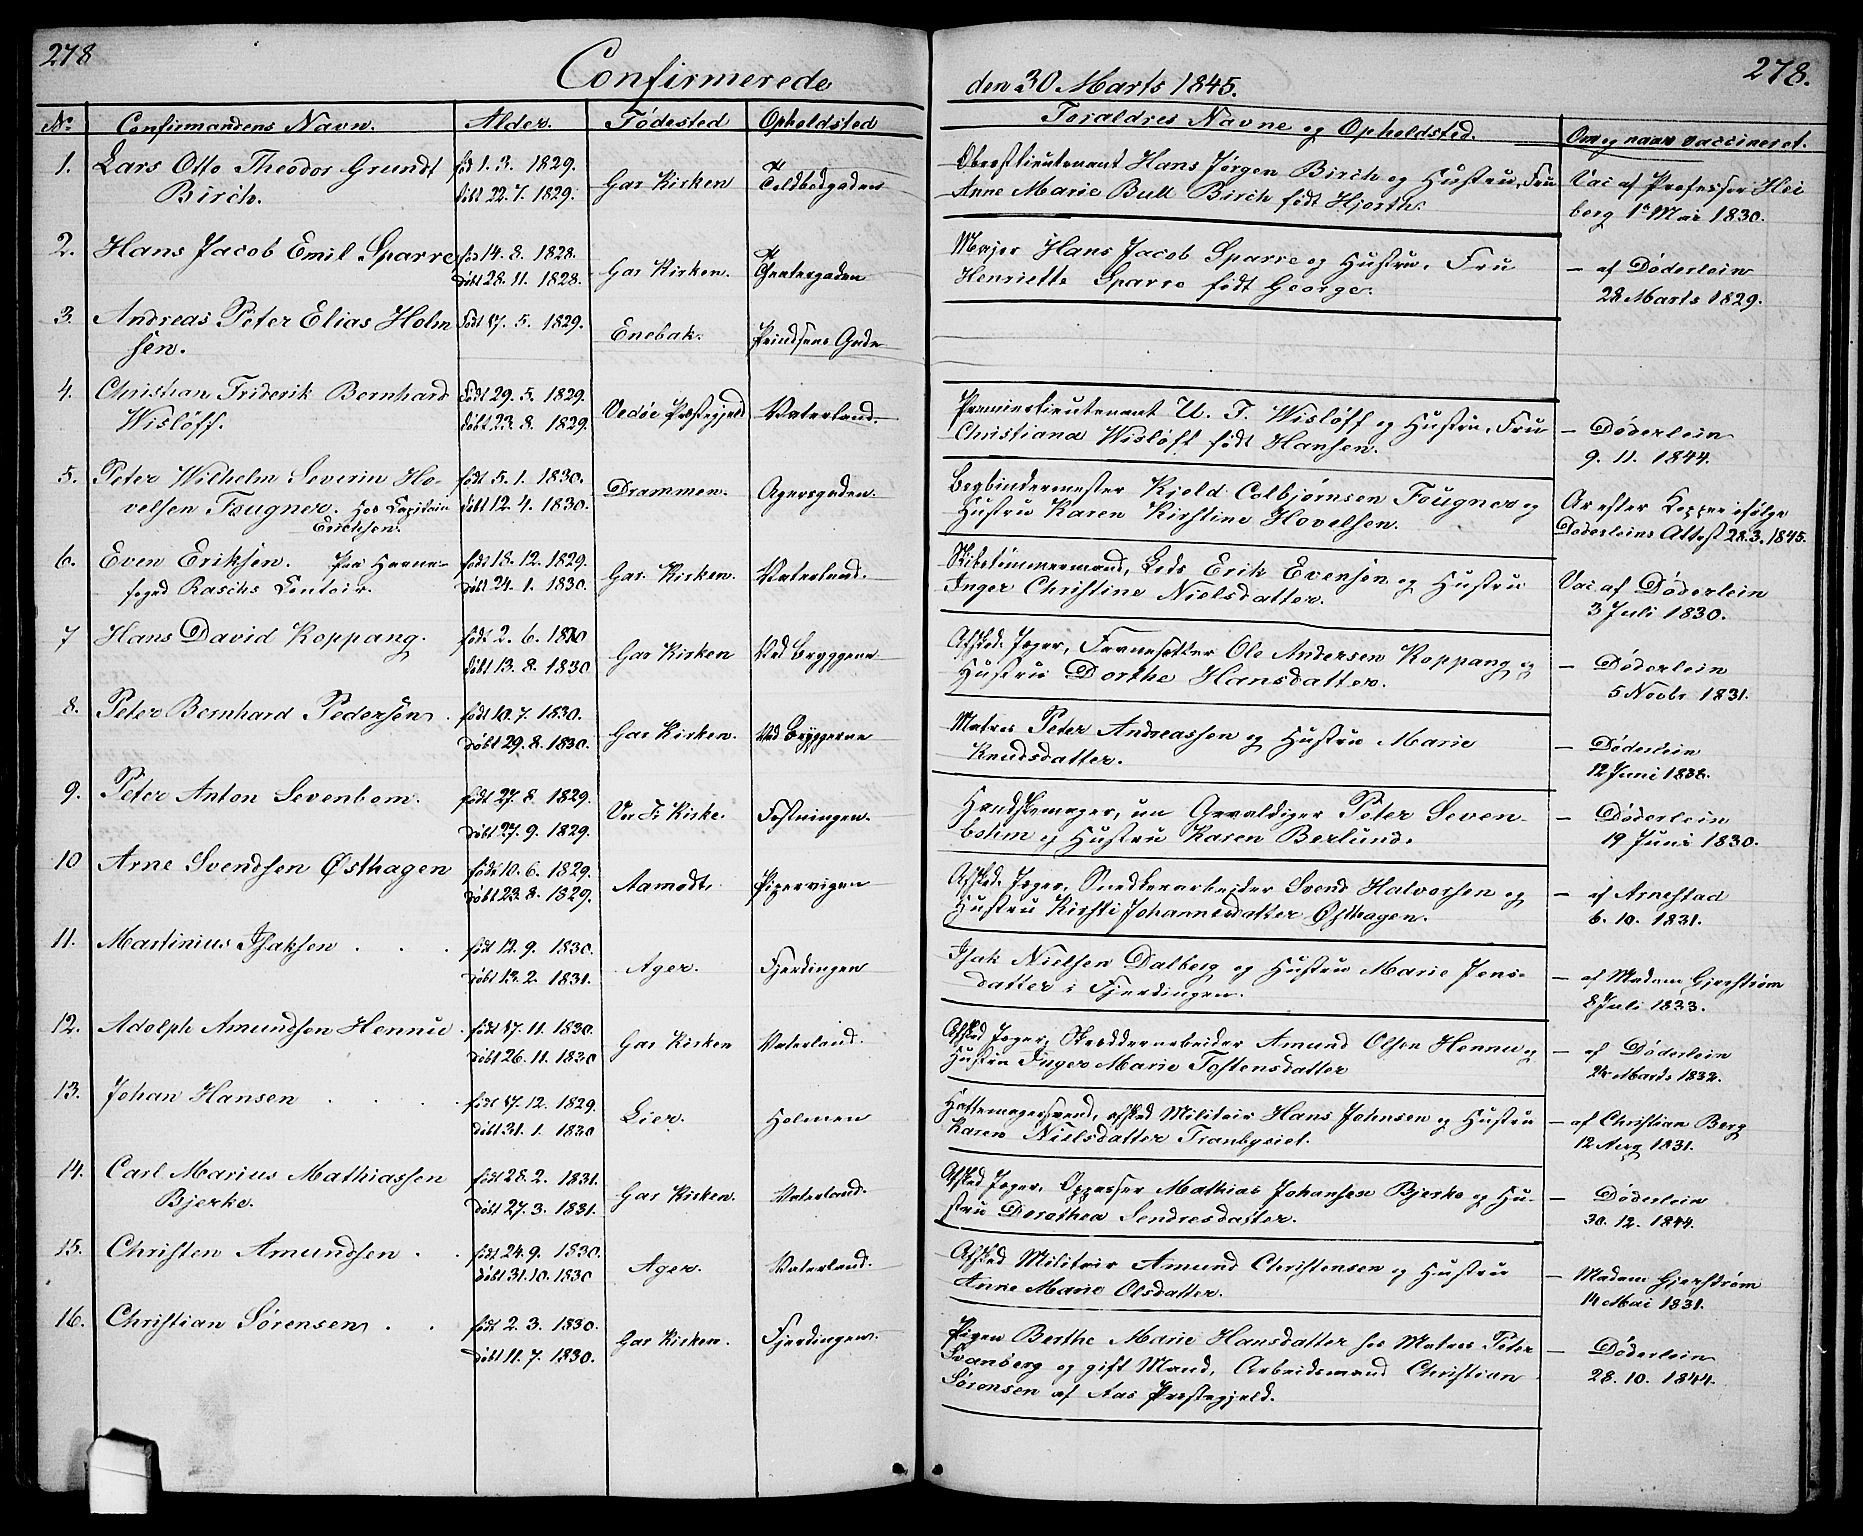 278
278.
Confirmerede
den 30 Marts 1845.
No. Confirmandens Navn. Alder. Födested Opholdsted
Foraldres Navne og Opholdsted. Om og naar vaccineret.
1. Lars Otto Theodor Grundt fød 1. 3. 1829. Gar Kirken Toldbodgaden
Birch. döbt 22. 7. 1829.
Oberstlieutenant Hans Jørgen Birch og Hustru, Fru Vac af Professor Hei
Anne Marie Bull Birch født Hjorth. berg 1 Mai 1830.
2. Hans Jacob Emil Sparre fød 14. 8. 1828. Gar Kirken.
döbt 28. 11. 1828.
Major Hans Jacob Sparre og Hustru, Fru — af Døderlein
Henriette Sparre født George. 28 Marts 1829.
3. Andreas Peter Elias Holm født 17. 5. 1829. Enebak. Prindsens Gade
sen.
4. Christian Friderik Bernhard født 29. 5. 1829. Vedöe Præstegjeld Vaterland.
Wislöff. döbt 23. 8. 1829.
Premierlieutenant U. F. Wislöff og Hustru, Fru — Døderlein
Christiana Wislöff født Hansen. 9. 11. 1844.
5. Peter Wilhelm Severin Ho- født 5. 1. 1830. Drammen. Agersgaden.
velsen Fougner. Hos Capitain döbt 12. 4. 1830.
Erichsen.
Bogbindermester Kield Colbjørnsen Fougner og Ar efter Kopper ifølge
Hustru Karen Kirstine Hovelsen. Døderleins Attest 28. 3. 1845.
6. Even Eriksen. Paa Havne- født 18. 12. 1829. Gar. Kirken. Vaterland.
foged Raschs Contoir. döbt 24. 1. 1830.
Skibstömmermand, Lods Erik Evensen og Hustru Vac af Døderlein
Inger Christine Nielsdatter. 3 Juli 1830.
7 Hans David Koppang. født 2. 6. 1830 Gar Kirken Ved Bryggerne
döbt 13. 8. 1830
Afsked. Jeger, Ole Andersen Koppang og — Døderlein
Hustru Dorthe Hansdatter. 5 Novbr 1831.
8. Peter Bernhard Pedersen. født 10. 7. 1830. Gar Kirken. Ved Bryggerne
döbt 29. 8. 1830.
Matros Peter Andreassen og Hustru Marie — Døderlein
Knudsdatter. 12 Juni 1832.
9. Peter Anton Sevenbom. født 27. 8. 1829. Vor Fr Kirke. Festningen.
döbt 27. 9. 1829.
Handskemager, nu Gevaldiger Peter Seven- — Døderlein
bohm og Hustru Karen Berlund. 19 Juni 1830.
10 Arne Svendsen Østhagen født 10. 6. 1829. Aamodt. Pipervigen
döbt 23. 8. 1829.
Afsked. Jeger, Snedkerarbeider Svend Halvorsen og — af Arnestad
Hustru Kirsti Johannesdatter Østhagen. 6. 10. 1831.
11. Martinius Isaksen . . . født 12. 9. 1830. Ager. Fjerdingen
döbt 13. 2. 1831.
Isak Nielsen Dalberg og Hustru Marie Jens- — af Madam Gjerstrøm
datter i Fjerdingen. 8 Juli 1833.
12. Adolph Amundsen Hennie . født 17. 11. 1830. Gar Kirken Vaterland.
döbt 26. 11. 1830
Afsked Jeger, Skrædderarbeider Amund Olsen Hennie og — af Døderlein
Hustru Inger Marie Tostensdatter 24 Marts 1832.
13. Johan Hansen . . . født 17. 12. 1829. Lier. Holmen
döbt 31. 1. 1830
Hattemagersvend, afsked Militair Hans Johnsen og Hustru — af Christian Berg
Karen Nielsdatter Tranbyeiet. 12 Aug 1831.
14. Carl Marius Mathiassen født 28. 2. 1831. Gar Kirken. Vaterland.
Bjerke. döbt 27. 3. 1831.
Afsked Jeger, Oppasser Mathias Johansen Bjerke og Hu- — Døderlein
stru Dorothea Sendresdatter. 30. 12. 1844.
15. Christen Amundsen . . født 24. 9. 1830. Ager. Vaterland.
döbt 31. 10. 1830
Afsked Militair Amund Christensen og Hustru — Madam Gjerstrøm
Anne Marie Olsdatter. 14 Mai 1831.
16. Christian Sørensen . . født 2. 3. 1830. Gar Kirken. Fjerdingen.
döbt 11. 7. 1830.
Pigen Berthe Marie Hansdatter hos Matros Peter — Døderlein
Svanberg og gift Mand, Arbeidsmand Christian 28. 10. 1844.
Sörensen af Aas Præstegjeld.